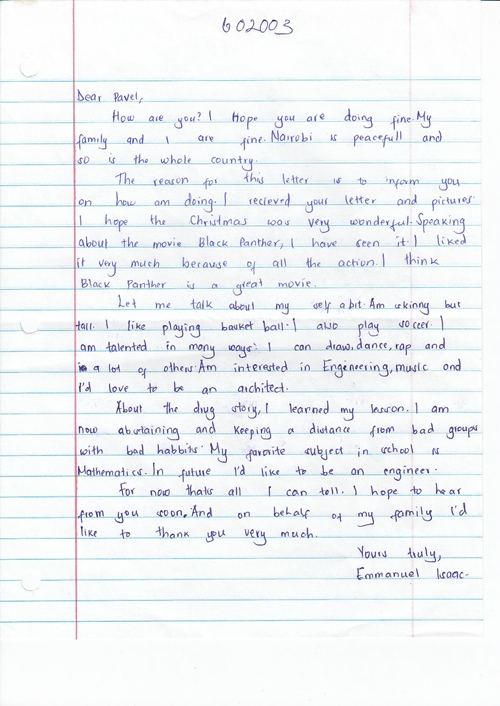 602003
Dear Pavel,
How are you? I Hope you are doing fine. My
family and I are fine. Nairobi is peacefull and
so is the whole country.
The reason for this letter is to inform you
on how am doing. I recieved your letter and pictures.
I hope the Christmas was very wonderful. Speaking
about the movie Black Panther, I have seen it. I liked
it very much because of all the action. I think
Black Panther is a great movie.
Let me talk about my self a bit. Am skinny but
tall. I like playing basket ball. I also play soccer. I
am talented in many ways: I can draw, dance, rap and
a lot of others. Am interested in Engineering, music and
I'd love to be an architect.
About the drug story, I learned my lesson. I am
now abstaining and keeping a distance from bad groups
with bad habbits. My favorite subject in school is
Mathematics. In future I'd like to be an engineer.
For now thats all I can tell. I hope to hear
from you soon. And on behalf of my family I'd
like to thank you very much.
Yours truly,
Emmanuel Isaac.